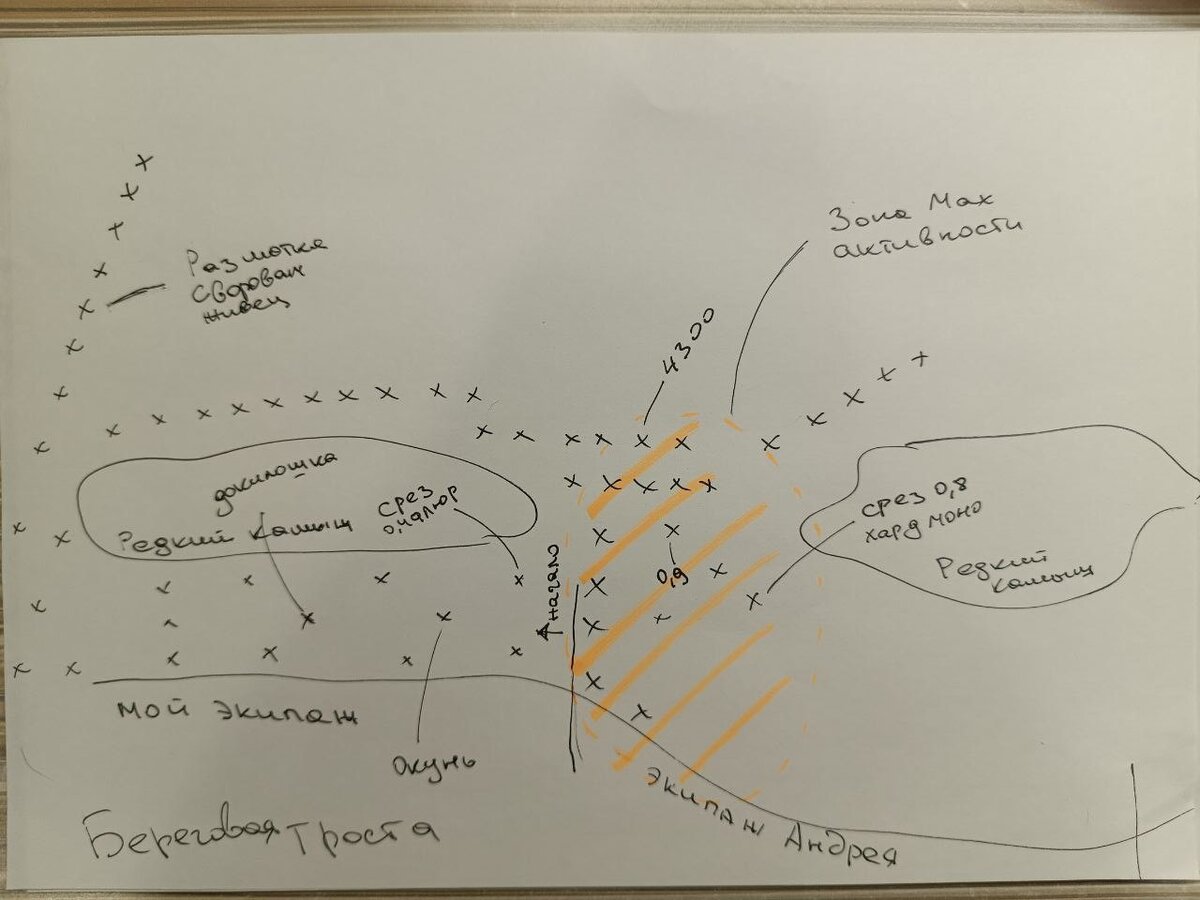 Зона Max
активности
Размотка
сворован
живец
4300
докилошка
Редкий камыш
срез
0,4 флюр
срез 0,8
хард моно
Редкий
камыш
0,9
начало
мой экипаж
окунь
экипаж Андрея
Береговая троста